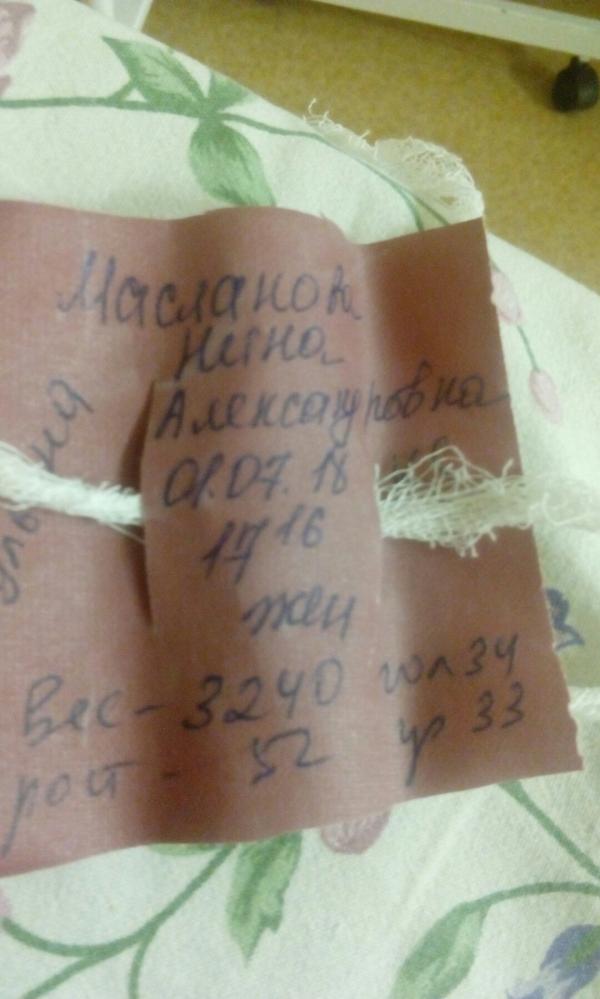 Масланова
Нина
Александровна
01.07.18
17 16
жен
Вес - 3240 гол 34
рост - 52 гр 33